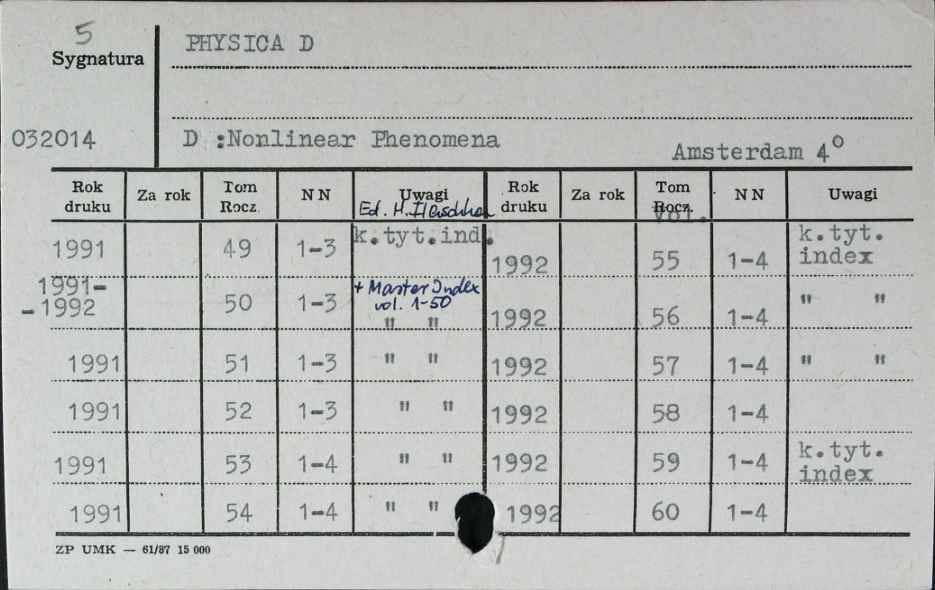 5
Sygnatura
PHYSICA D
032014
D :Nonlinear Phenomena
Amsterdam 4°
Rok druku Za rok Tom Rocz. NN Uwagi Rok druku Za rok Tom Rocz. NN Uwagi
Ed. H. Vol.
1991 49 1-3 k.tyt.ind. 1992 55 1-4 k.tyt. index
1991--1992 50 1-3 + Master Index vol. 1-50 " " 1992 56 1-4 " "
1991 51 1-3 " " 1992 57 1-4 " "
1991 52 1-3 " " 1992 58 1-4
1991 53 1-4 " " 1992 59 1-4 k.tyt. index
1991 54 1-4 " " 1992 60 1-4
ZP UMK — 61/87 15 000